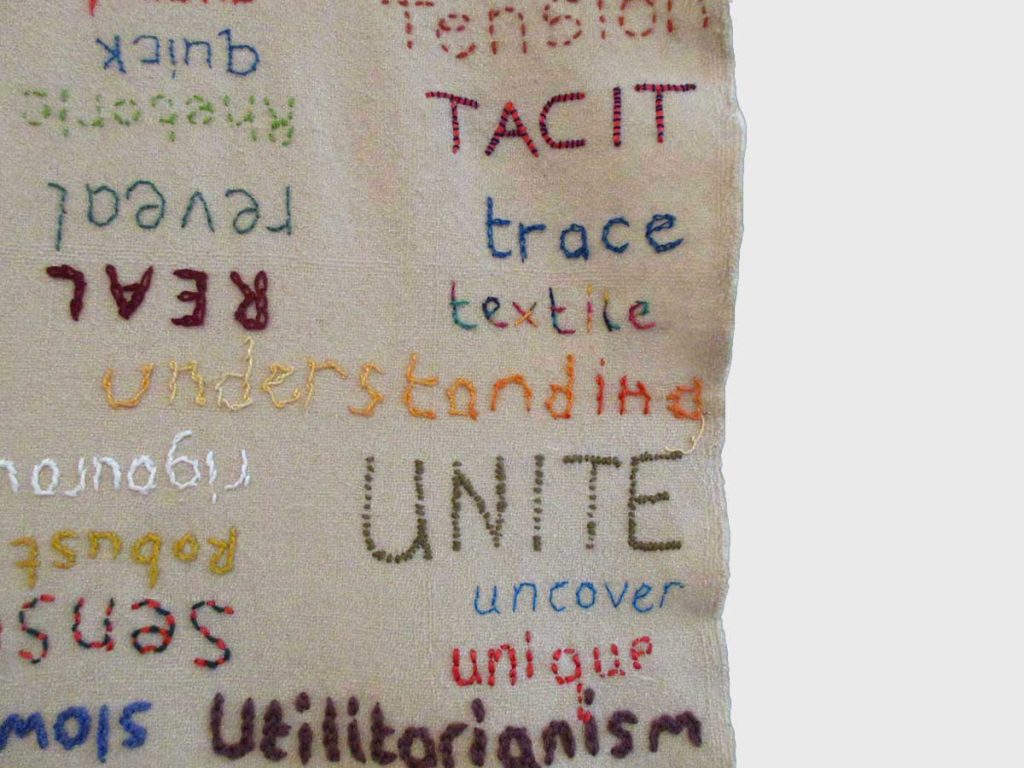 Tension
TACIT
trace
textile
understanding
UNITE
uncover
unique
Utilitarianism
quick
Rhetoric
reveal
REAL
rigourou
Robust
Sens
slow